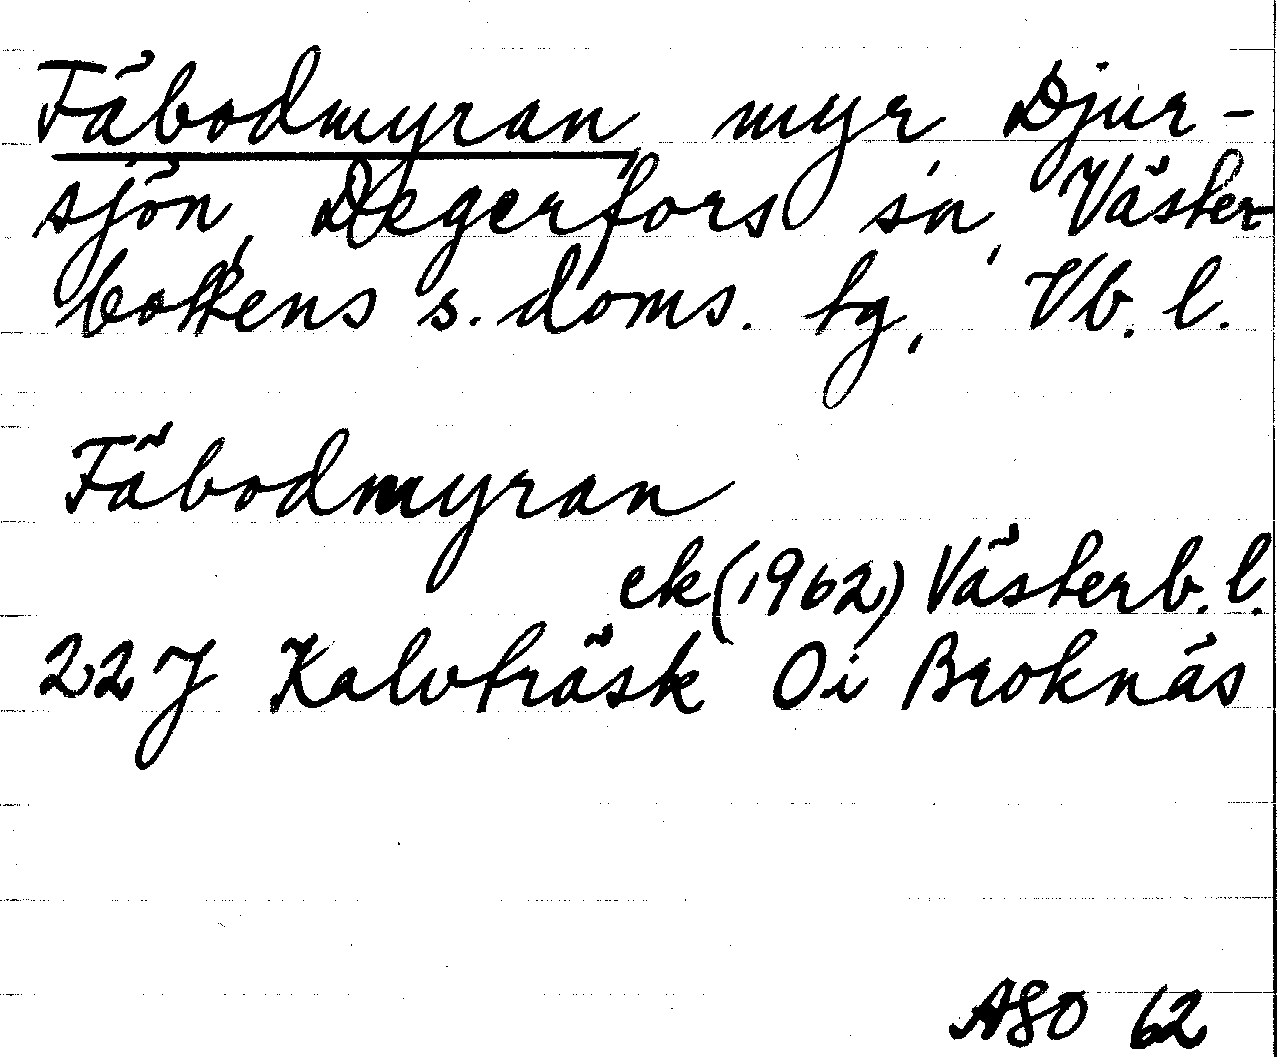 Fäbodmyran, myr Djur-
sjön, Degerfors sn, Väster-
bottens s. doms. tg, Vb. l.
Fäbodmyran
ek (1962) Västerb. l.
22 J Kalvträsk Öi Broknäs
ASO 62